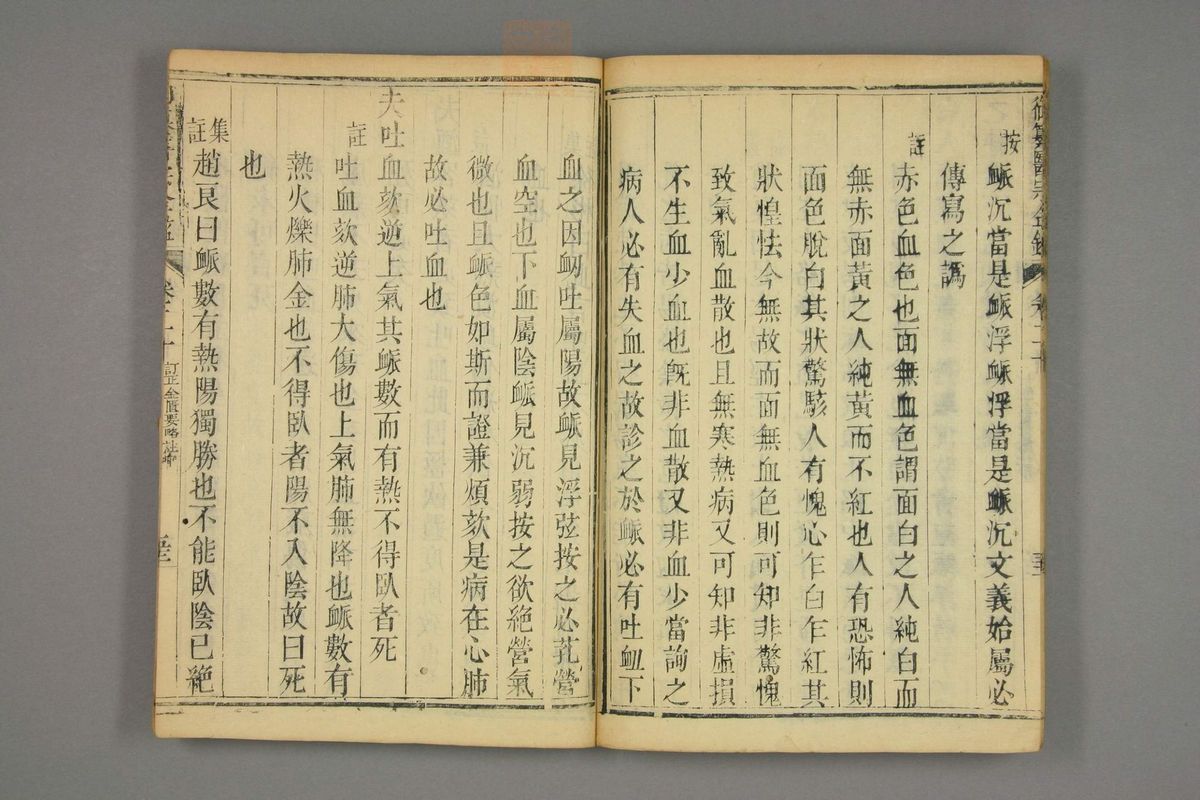 御纂醫宗金鑑 卷二十
按 䘑沉當是䘑浮䘑浮當是䘑沉文義始屬必
傳寫之譌
註 赤色血色也面無血色謂面白之人純白而
無赤面黃之人純黃而不紅也人有恐怖則
面色脫白其狀驚駭人有愧心乍白乍紅其
狀惶怯今無故而面無血色則可知非驚愧
致氣亂血散也且無寒熱病又可知非虛損
不生血少血也旣非血散又非血少當詢之
病人必有失血之故診之於䘑必有吐衂下
血之因衂吐屬陽故䘑見浮弦按之必芤營
血空也下血屬陰䘑見沉弱按之欲絕營氣
微也且䘑色如斯而證兼煩欬是病在心肺
故必吐血也
夫吐血欬逆上氣其䘑數而有熱不得臥者死
註 吐血欬逆肺大傷也上氣肺無降也䘑數有
熱火爍肺金也不得臥者陽不入陰故曰死
也
集註 趙良曰䘑數有熱陽獨勝也不能臥陰已絕
卷二十 訂正金匱要略註